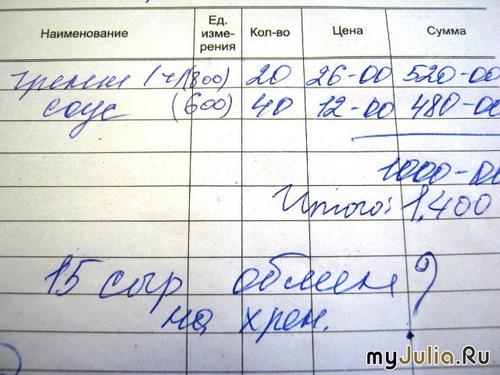 Наименование Ед. изме- рения Кол-во Цена Сумма
(800) 20 26-00 520-00
соус (600) 40 12-00 480-00
1000-00
Итого: 1.400
15 сыр обмен ?
на хрен.
myJulia.Ru